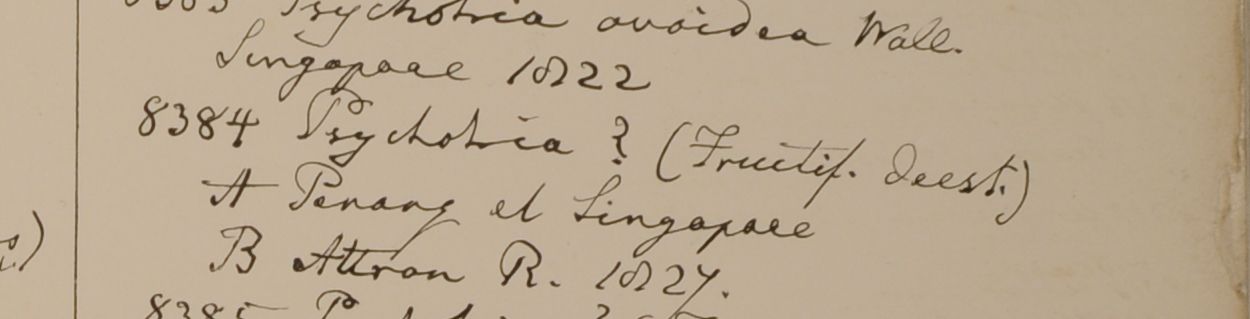 8383 Psychotria ovoidea Wall.
Singapore 1822
8384 Psychotria ? (Fructif. deest.)
A Penang et Singapore
B Attran R. 1827.
8385